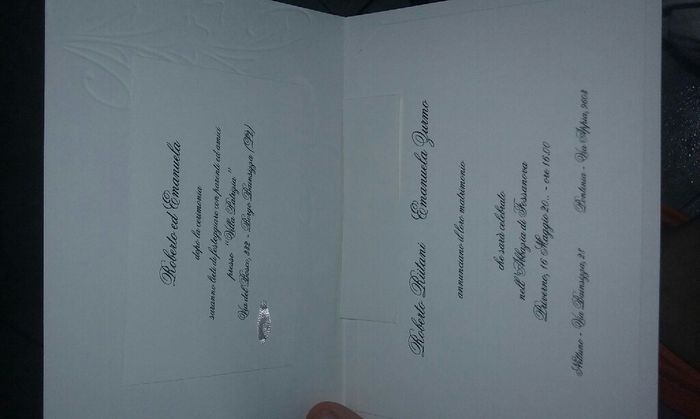 Roberto ed Emanuela
dopo la cerimonia
saranno lieti di festeggiare con parenti ed amici
presso "Villa
Via del Bosco, 322 - Borgo Bainsizza
Roberto Emanuela Zurmo
annunciano il loro matrimonio
che sarà celebrato
nell'Abbazia di Fossanova
Priverno, 16 Maggio 20.. - ore 16.00
Nettuno - Via Bainsizza, 28 Pontinia - Via Appia, 2608